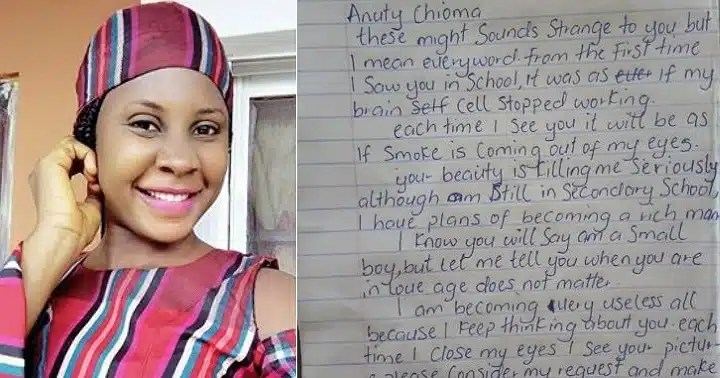 Anuty Chioma
these might Sounds Strange to you but
I mean everyword from the first time
I Saw you in School, it was as if my
brain self cell stopped working.
each time I See you it will be as
If Smoke is coming out of my eyes.
your beauty is killing me Seriously
although am Still in Secondary School,
I have plans of becoming a rich man
I know you will Say am a Small
boy, but let me tell you when you are
in love age does not matter.
I am becoming very useless all
because I keep thinking about you each
time I close my eyes I See your pictur-
please consider my request and make